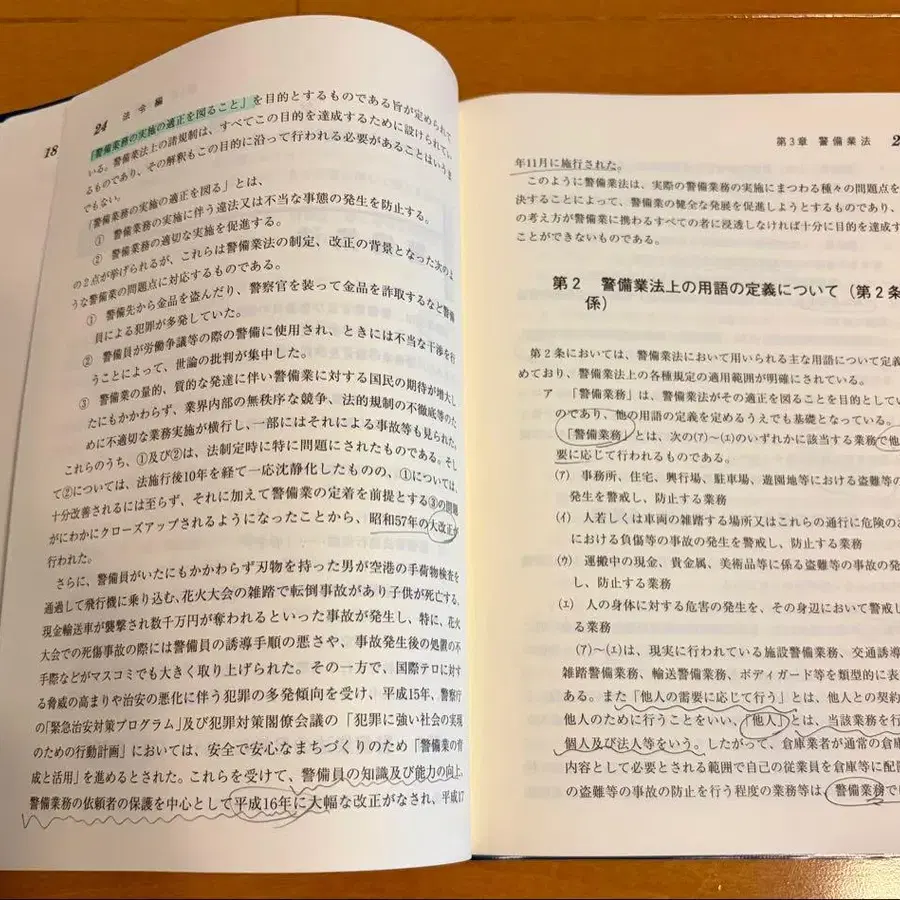 18
24 法令編
「警備業務の実施の適正を図ること」を目的とするものである旨が定められて
いる。警備業法上の諸規制は、すべてこの目的を達成するために設けられてい
るものであり、その解釈もこの目的に沿って行われる必要があることはいうま
でもない。
「警備業務の実施の適正を図る」とは、
① 警備業務の実施に伴う違法又は不当な事態の発生を防止する。
② 警備業務の適切な実施を促進する。
の2点が挙げられるが、これらは警備業法の制定、改正の背景となった次のよ
うな警備業の問題点に対応するものである。
① 警備先から金品を盗んだり、警察官を装って金品を詐取するなど警備
員による犯罪が多発していた。
② 警備員が労働争議等の際の警備に使用され、ときには不当な干渉を行
うことによって、世論の批判が集中した。
③ 警備業の量的、質的な発達に伴い警備業に対する国民の期待が増大し
たにもかかわらず、業界内部の無秩序な競争、法的規制の不徹底等のた
めに不適切な業務実施が横行し、一部にはそれによる事故等も見られた。
これらのうち、①及び②は、法制定時に特に問題にされたものである。そし
て②については、法施行後10年を経て一応沈静化したものの、①については、
十分改善されるには至らず、それに加えて警備業の定着を前提とする③の問題
がにわかにクローズアップされるようになったことから、昭和57年の大改正が
行われた。
さらに、警備員がいたにもかかわらず刃物を持った男が空港の手荷物検査を
通過して飛行機に乗り込む、花火大会の雑踏で転倒事故があり子供が死亡する、
現金輸送車が襲撃され数千万円が奪われるといった事故が発生し、特に、花火
大会での死傷事故の際には警備員の誘導手順の悪さや、事故発生後の処置の不
手際などがマスコミでも大きく取り上げられた。その一方で、国際テロに対す
る脅威の高まりや治安の悪化に伴う犯罪の多発傾向を受け、平成15年、警察庁
の「緊急治安対策プログラム」及び犯罪対策閣僚会議の「犯罪に強い社会の実現
のための行動計画」においては、安全で安心なまちづくりのため「警備業の育
成と活用」を進めるとされた。これらを受けて、警備員の知識及び能力の向上、
警備業務の依頼者の保護を中心として平成16年に大幅な改正がなされ、平成17
第3章 警備業法 2
年11月に施行された。
このように警備業法は、実際の警備業務の実施にまつわる種々の問題点を
決することによって、警備業の健全な発展を促進しようとするものであり、
の考え方が警備業に携わるすべての者に浸透しなければ十分に目的を達成す
ことができないものである。
第2 警備業法上の用語の定義について(第2条
係)
第2条においては、警備業法において用いられる主な用語について定義
めており、警備業法上の各種規定の適用範囲が明確にされている。
ア 「警備業務」は、警備業法がその適正を図ることを目的としてい
のであり、他の用語の定義を定めるうえでも基礎となっている。
「警備業務」とは、次の(ｱ)～(ｴ)のいずれかに該当する業務で他
要に応じて行われるものである。
(ｱ) 事務所、住宅、興行場、駐車場、遊園地等における盗難等の
発生を警戒し、防止する業務
(ｲ) 人若しくは車両の雑踏する場所又はこれらの通行に危険のあ
における負傷等の事故の発生を警戒し、防止する業務
(ｳ) 運搬中の現金、貴金属、美術品等に係る盗難等の事故の発
し、防止する業務
(ｴ) 人の身体に対する危害の発生を、その身辺において警戒し
る業務
(ｱ)～(ｴ)は、現実に行われている施設警備業務、交通誘導
雑踏警備業務、輸送警備業務、ボディガード等を類型的に表
ある。また「他人の需要に応じて行う」とは、他人との契約
他人のために行うことをいい、「他人」とは、当該業務を行
個人及び法人等をいう。したがって、倉庫業者が通常の倉庫
内容として必要とされる範囲で自己の従業員を倉庫等に配置
の盗難等の事故の防止を行う程度の業務等は、警備業務で